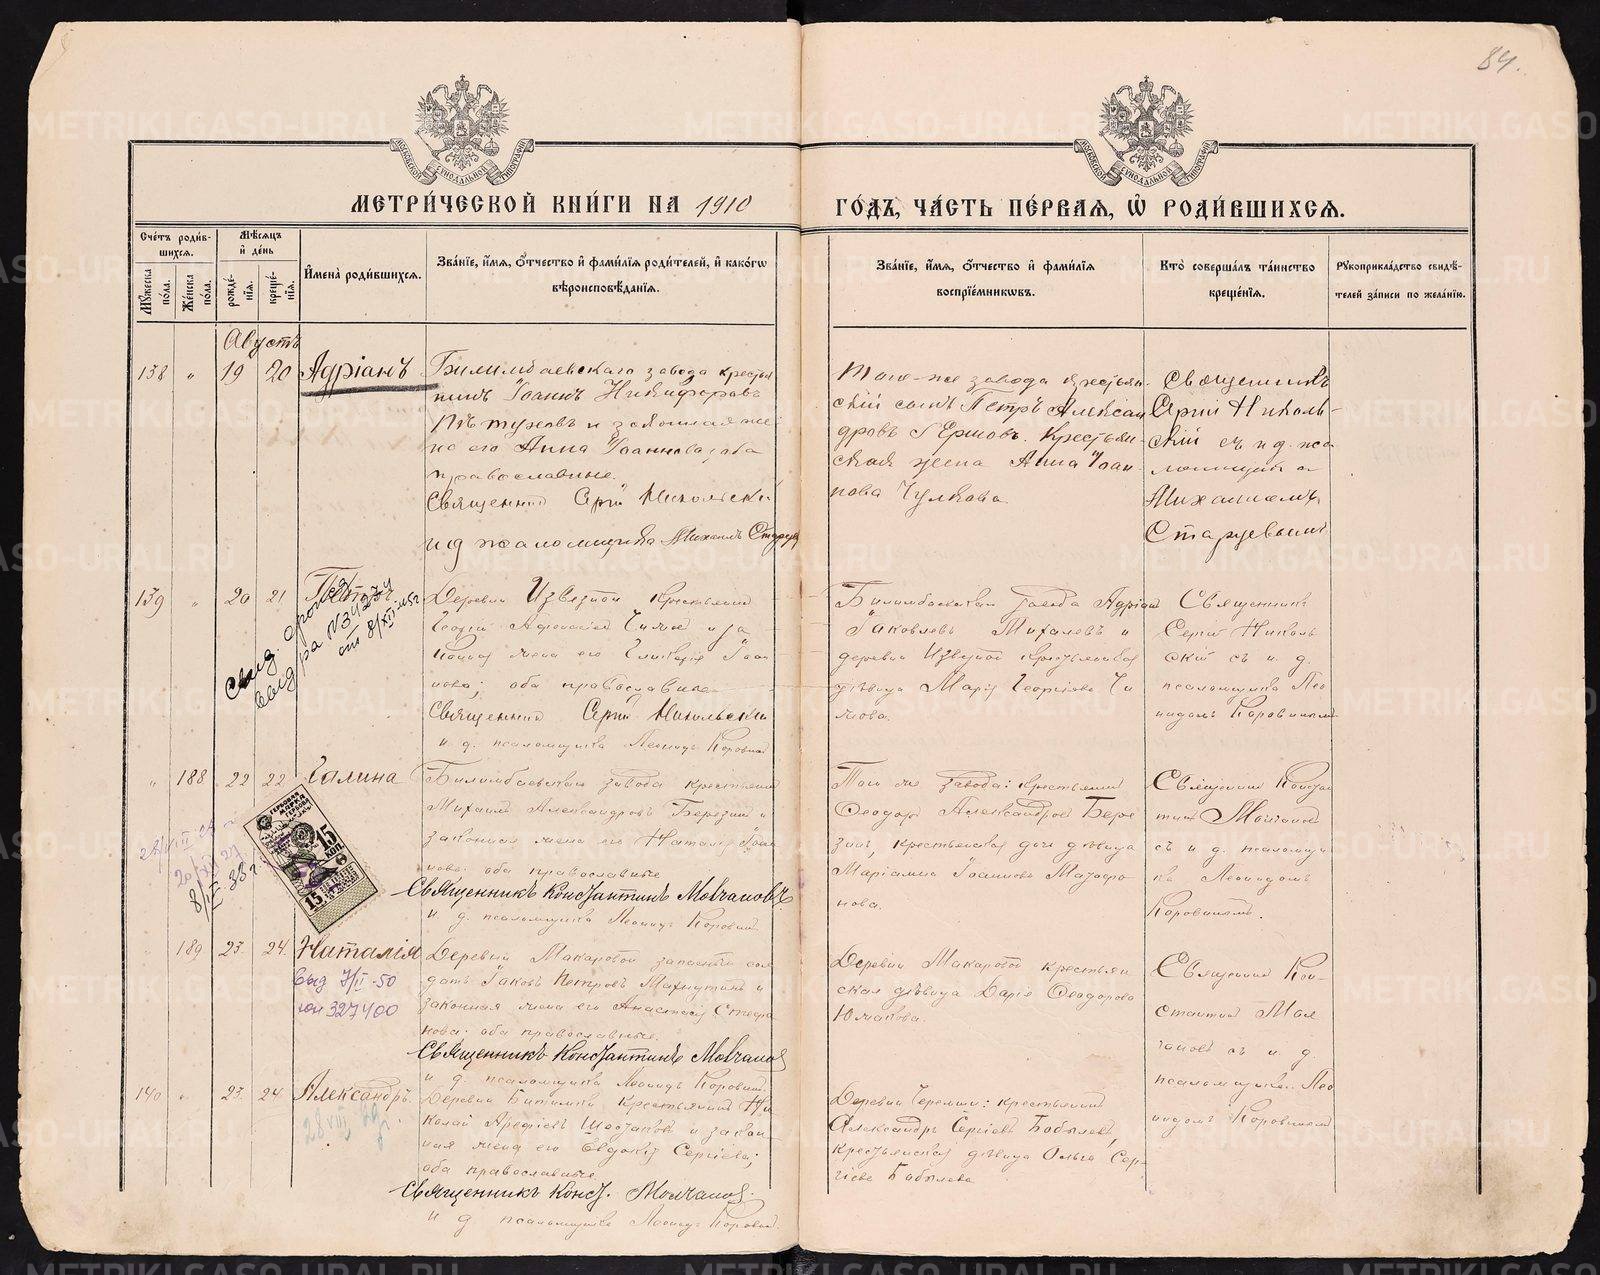 84.
МОСКОВСКОЙ СѴНОДАЛЬНОЙ ТИПОГРАФІИ
МОСКОВСКОЙ СѴНОДАЛЬНОЙ ТИПОГРАФІИ
МЕТРИ́ЧЕСКОЙ КНИ́ГИ НА 1910
ГО́ДЪ, ЧА́СТЬ ПЕ́РВАѦ, Ѽ РОДИ́ВШИХСѦ.
Сче́тъ роди́в-
шихсѧ.
Мꙋ́жеска по́ла.
Же́нска по́ла.
Мѣ́сѧцъ
и҆ де́нь
рожде́-
нїѧ.
креще́-
нїѧ.
И҆мена̀ роди́вшихсѧ.
Зва́нїе, и҆́мѧ, ѻ҆́тчество и҆ фами́лїѧ роди́телей, и҆ како́гѡ
вѣроисповѣ́данїѧ.
Зва́нїе, и҆́мѧ, ѻ҆́тчество и҆ фами́лїѧ
воспрїе́мникѡвъ.
Кто̀ соверша́лъ та́инство
креще́нїѧ.
Рꙋкоприкла́дство свидѣ́-
телей за́писи по жела́нїю.
Августъ
138 " 19 20 Адріанъ
Билимбаевскаго завода крестья
нинъ Іоаннъ Никифоровъ
и законная же
на его Анна Іоаннова, оба
православные.
Священникъ Сергій Никольскій
и д псаломщика Михаилъ Старцев
Того-же завода крестьян-
скій сынъ Петръ Алексан
дровъ Ершовъ. Крестьян-
ская жена Анна Іоан-
нова Чулкова
Священникъ
Сергій Николь-
скій съ и д. пса
ломщика
Михаиломъ
Старцевымъ
139 " 20 21 Петръ
выд. ра N 31274
от 8/XII-45г
Деревни Извѣзной крестьянинъ
Георгій
конная жена его Гликерія Іоан
нова; оба православные
Священникъ Сергій Никольскій
и. д. псаломщика Леонидъ Коровинъ
Билимбаевскаго завода Адріан
Іаковлевъ Михалевъ и
деревни Извѣзной крестьянская
дѣвица Марія Георгіева
Священникъ
Сергій Николь
скій съ и. д.
псаломщика Лео
нидомъ Коровинымъ
" 188 22 22 Галина
Билимбаевскаго завода крестьянинъ
Михаилъ Александровъ Березинъ и
законная жена его Наталія Іоан
нова: оба православные
Священникъ Константинъ Молчановъ
и д. псаломщика Леонидъ Коровинъ
Того же завода: крестьянинъ
Ѳеодоръ Александровъ Бере
зинъ, крестьянская дочь дѣвица
Маріанна Іоаннова
нова.
Священникъ Констан
тинъ Молчановъ
съ и д. псаломщи
ка Леонидомъ
Коровинымъ.
8/IX 33г
ГЕРБОВАЯ МАРКА
15 коп.
15
189 23. 24. Наталія
выд 7/II-50
юп 327400
Деревни Макаровой запасный сол
датъ Іаковъ Петровъ Махнутинъ и
законная жена его Анастасія Стефа
нова: оба православные.
Священникъ Константинъ Молчанов
и д. псаломщика Леонидъ Коровинъ.
Деревни Макаровой крестьян
ская дѣвица Дарія Ѳеодорова
Юмакова.
Священникъ Кон-
стантинъ Мол
чановъ съ и. д.
псаломщика Лео
нидомъ Коровинымъ
140 " 23. 24 Александръ.
28 VIII 29г.
Деревни Битимки крестьянинъ Ни
колай и закон
ная жена его Евдокія Сергіева;
оба православные
Священникъ Конст. Молчанов.
и д псаломщика Леонидъ Коровин
Деревни Черемши: крестьянинъ
Александръ Сергіевъ Бобылевъ,
крестьянская дѣвица Ольга Сер-
гіева Бобылева